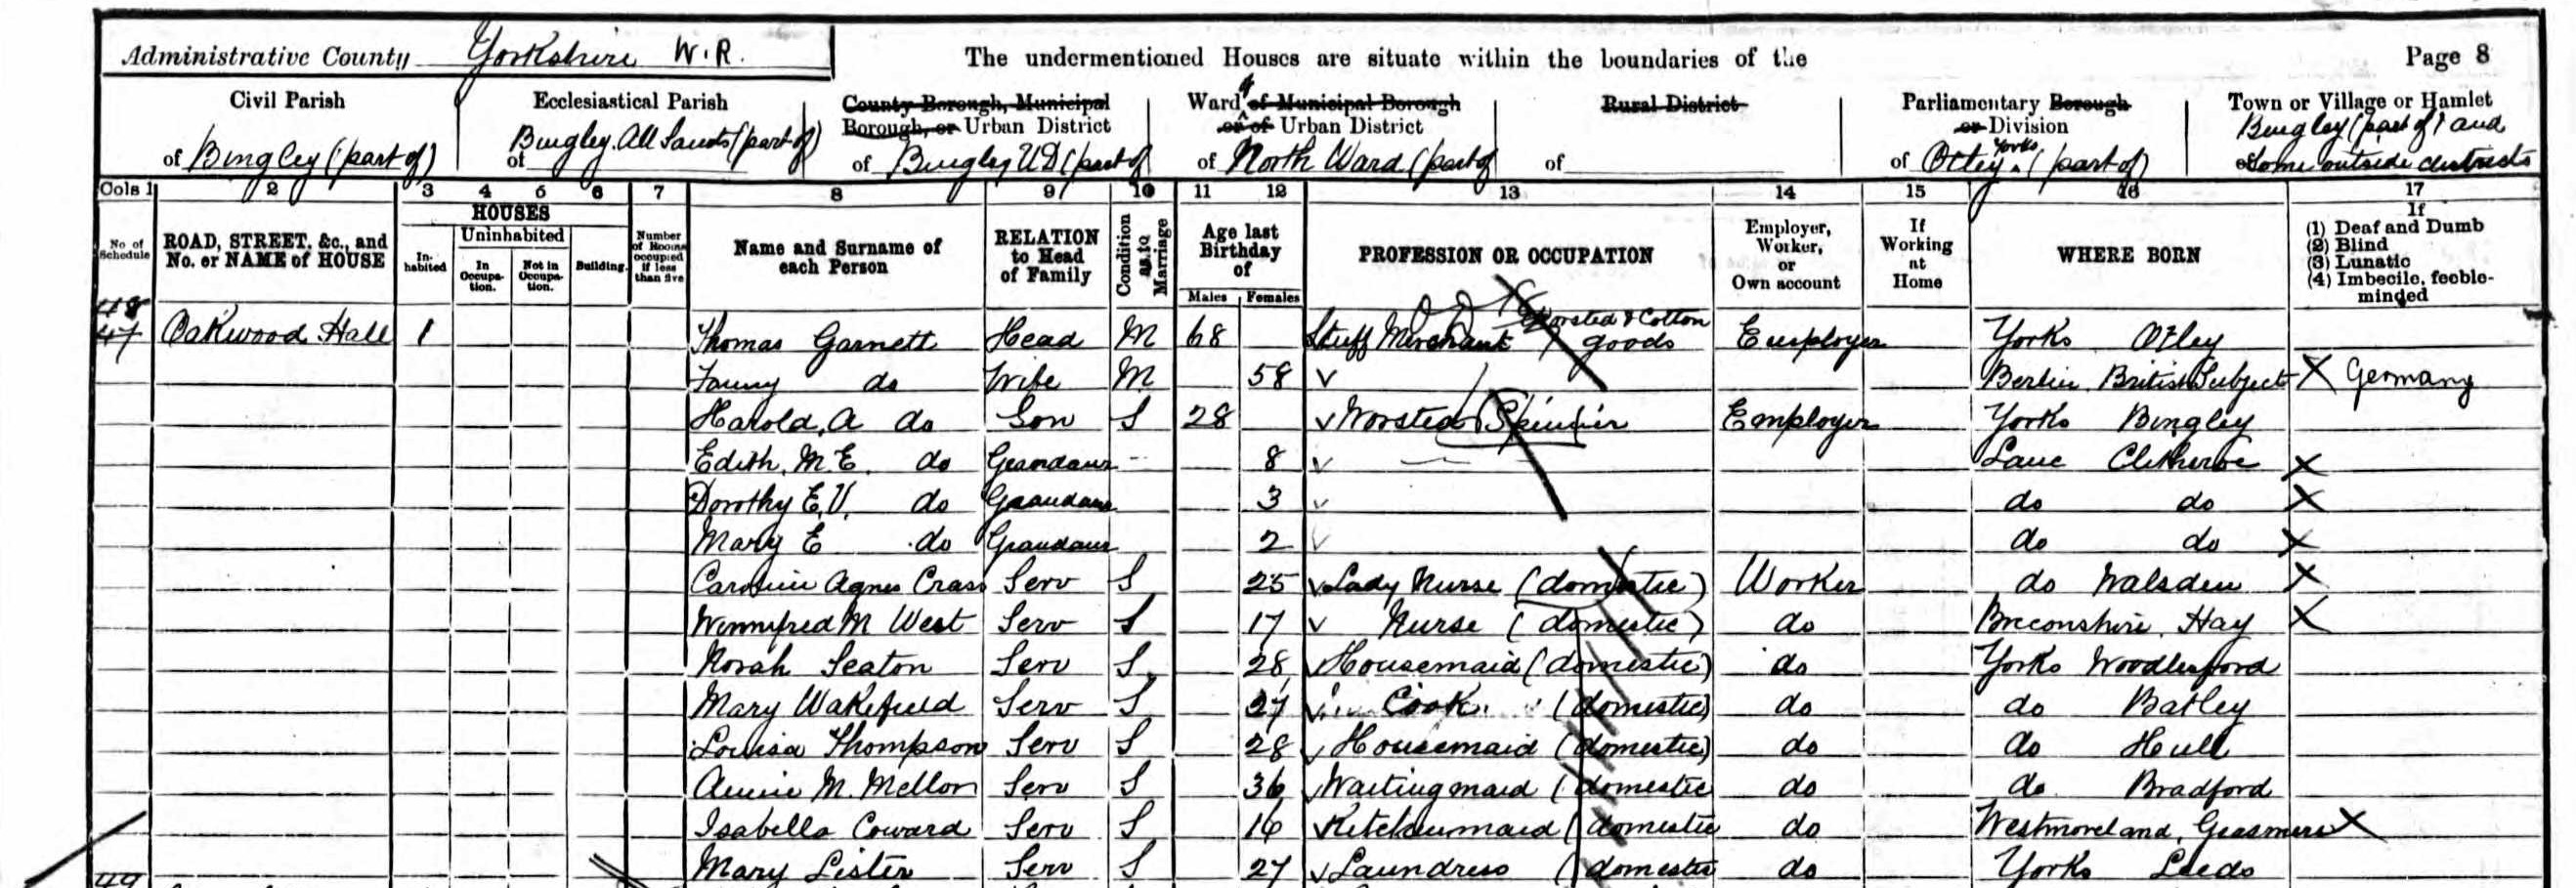 Administrative County Yorkshire W.R. The undermentioned Houses are situate within the boundaries of the Page 8
Civil Parish Ecclesiastical Parish County Borough, Municipal Borough, or Urban District Ward of Municipal Borough or of Urban District Rural District Parliamentary Borough or Division Town or Village or Hamlet
of Bingley (part of) of Bingley All Saints (part of) of Bingley U D (part of of North Ward (part of of of Otley Yorks (part of) Bingley (part of) and some outside districts
Cols 1 2 3 4 5 6 7 8 9 10 11 12 13 14 15 16 17
No of Schedule ROAD, STREET, &c., and No. or NAME of HOUSE HOUSES In-habited Uninhabited In Occupa-tion. Not in Occupa-tion. Building. Number of Rooms occupied if less than five Name and Surname of each Person RELATION to Head of Family Condition as to Marriage Age last Birthday of Males Females PROFESSION OR OCCUPATION Employer, Worker, or Own account If Working at Home WHERE BORN If (1) Deaf and Dumb (2) Blind (3) Lunatic (4) Imbecile, feeble-minded
48
47 Oakwood Hall 1 Thomas Garnett Head M 68 Stuff Merchant Worsted & Cotton goods Employer Yorks Otley
Fanny do Wife M 58 Berlin British Subject X Germany
Harold. A do Son S 28 Worsted Spinner Employer Yorks Bingley
Edith. M. E. do Grandaur 8 Lanc Clitheroe X
Dorothy E. V. do Grandaur 3 do do X
Mary E do Grandaur 2 do do X
Caroline Agnes Crass Serv S 25 Lady Nurse (domestic) Worker do Walsden X
Winnifred M West Serv S 17 Nurse (domestic) do Breconshire. Hay X
Norah Seaton Serv S 28 Housemaid (domestic) do Yorks Woodlesford
Mary Wakefield Serv S 27 Cook (domestic) do do Batley
Louisa Thompson Serv S 28 Housemaid (domestic) do do Hull
Annie M. Mellor Serv S 36 Waitingmaid (domestic do do Bradford
Isabella Coward Serv S 16 Kitchenmaid (domestic do Westmoreland, Grasmere X
Mary Lister Serv S 27 Laundress (domestic do Yorks Leeds
49